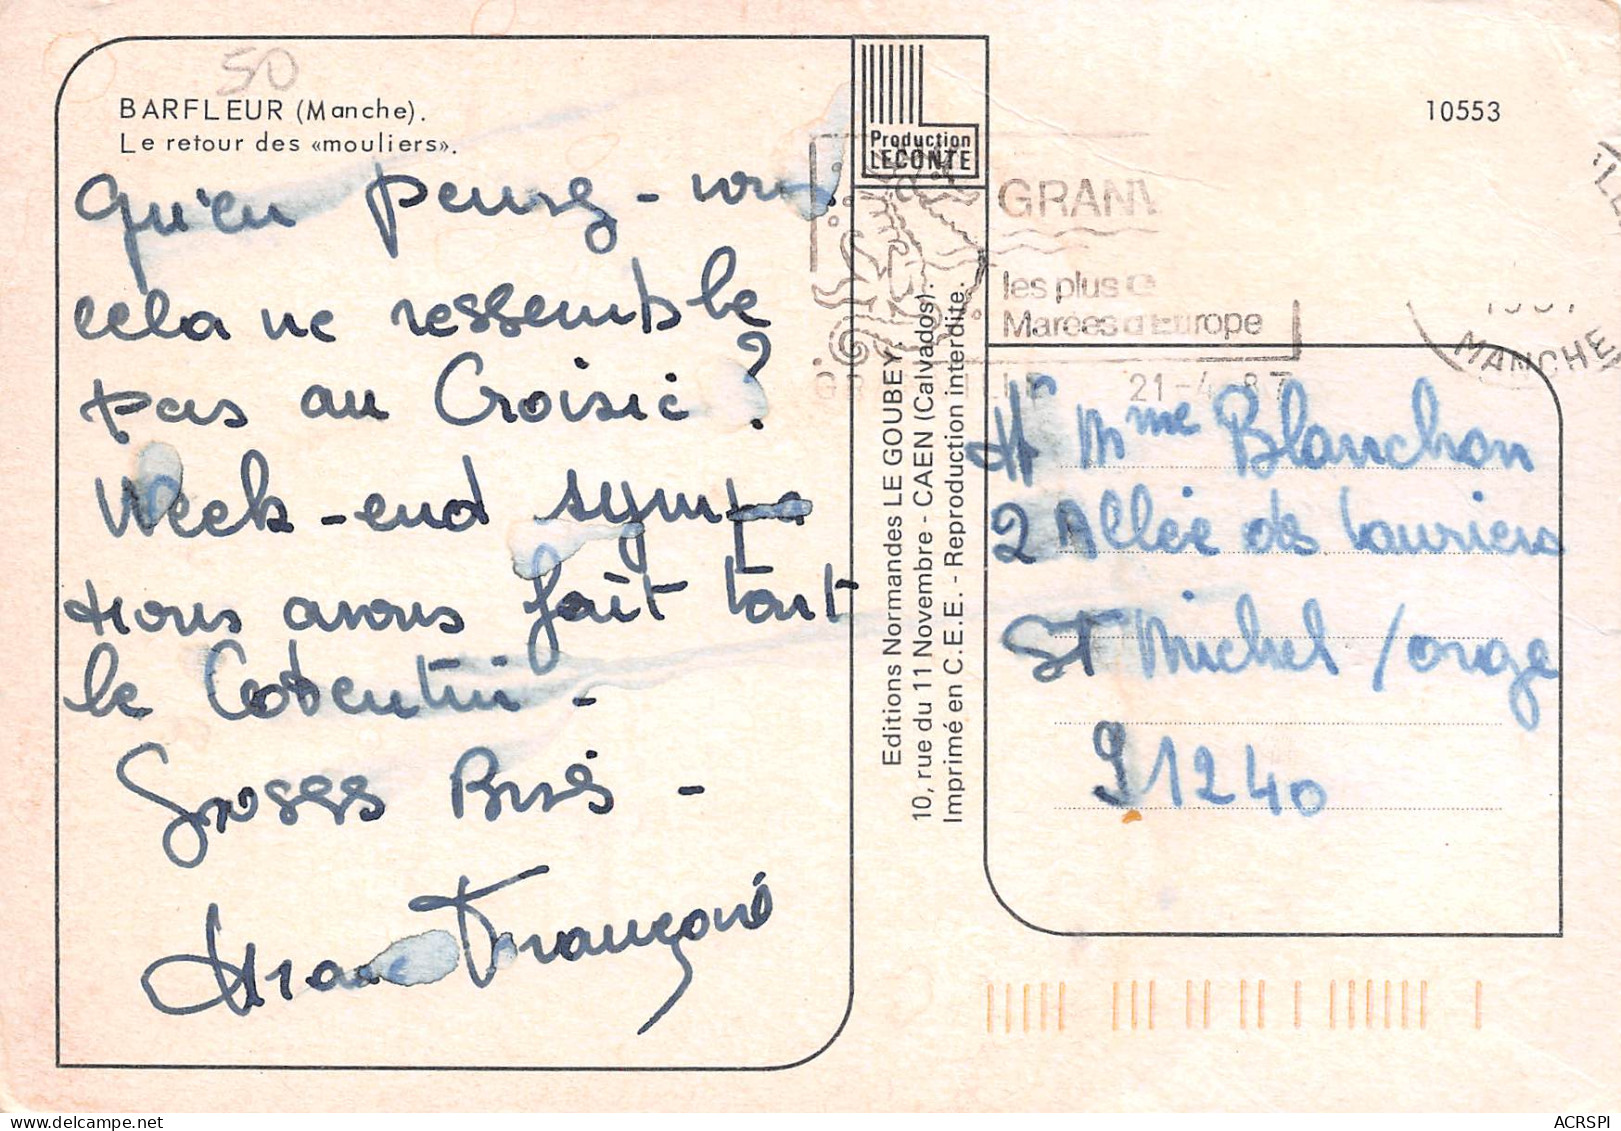 50
BARFLEUR (Manche).
Le retour des «mouliers».
Qu'en pensez-vous
cela ne ressemble
pas au Croisic ?
Week-end sympa
nous avons fait tout
le Cotentin -
Grosses Bises -
Françoise
Production
LECONTE
Editions Normandes LE GOUBEY.
10, rue du 11 Novembre - CAEN (Calvados).
Imprimé en C.E.E. - Reproduction interdite.
10553
GRANV
les plus
Marées d'Europe
21-4 87
MANCHE
M Mme Blanchon
2 Allée des Lauriers
ST Michel / orge
91240
ACRSPI